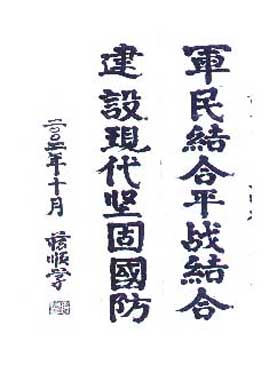 軍民結合平战結合
建設現代坚固國防
二〇〇五年十月
蔣順学